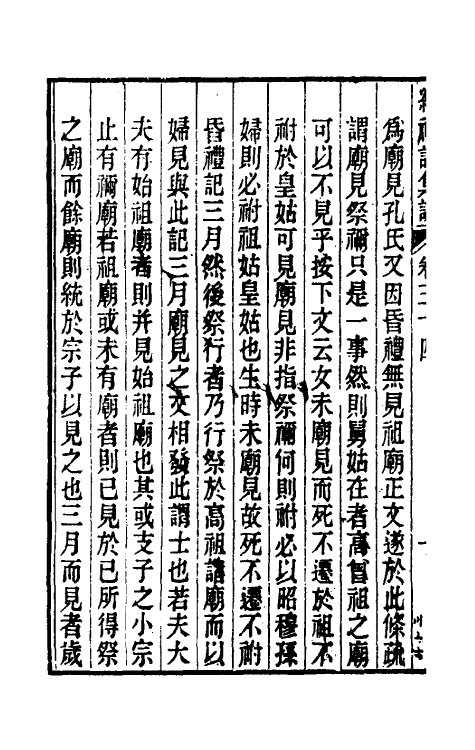 續禮記集說 卷三十四
爲廟見孔氏又因昏禮無見祖廟正文遂於此條疏
謂廟見祭禰只是一事然則舅姑在者高曾祖之廟
可以不見乎按下文云女未廟見而死不遷於祖不
祔於皇姑可見廟見非指祭禰何則祔必以昭穆孫
婦則必祔祖姑皇姑也生時未廟見故死不遷不祔
昏禮記三月然後祭行者乃行祭於高祖諸廟而以
婦見與此記三月廟見之文相發此謂士也若夫大
夫有始祖廟者則并見始祖廟也其或支子之小宗
止有禰廟若祖廟或未有廟者則已見於已所得祭
之廟而餘廟則統於宗子以見之也三月而見者歲